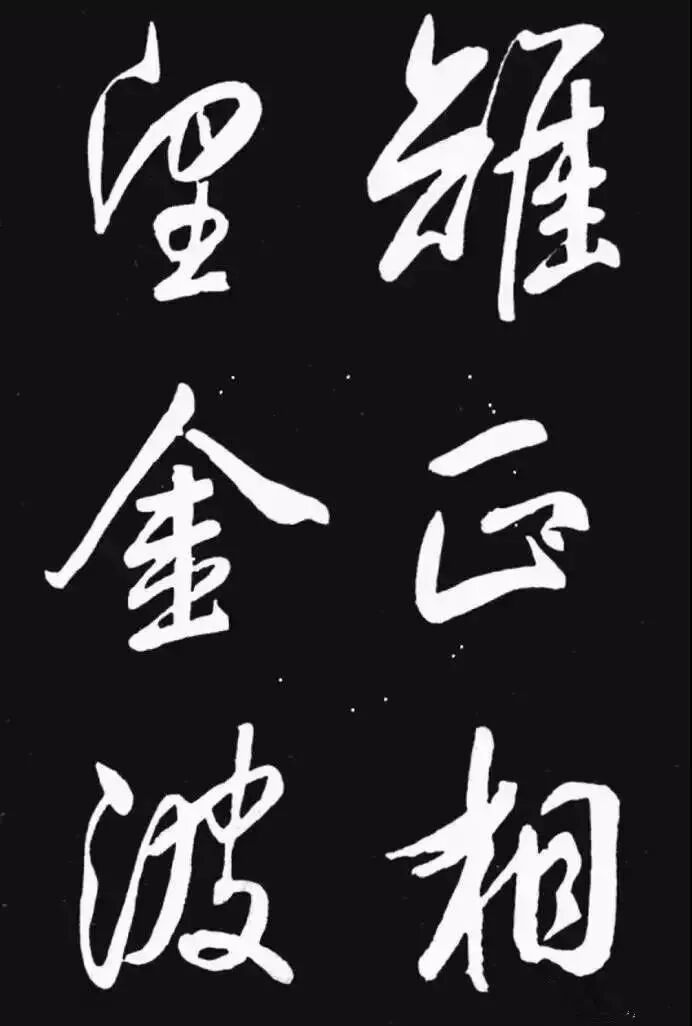 雉正相
望金波